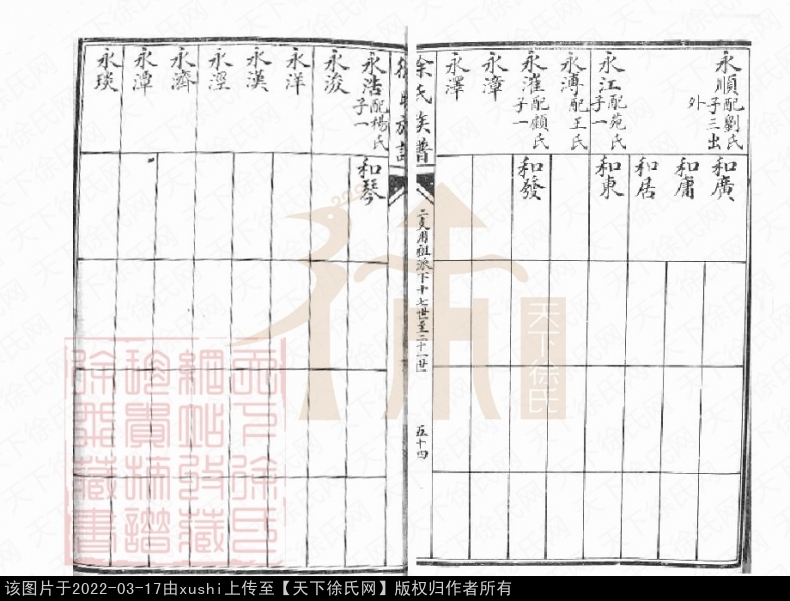 永順 配劉氏 子三 出外
和廣
和庸
和居
永江 配苑氏 子一
和東
永溥 配王氏
永漼 配顧氏 子一
和發
永漳
永澤
徐氏族譜
二支用祖派下十七世至二十一世
五十四
永浩 配楊氏 子一
和琴
永浚
永洋
永漢
永淫
永濟
永潭
永琰
天下徐氏
该图片于2022-03-17由xushi上传至【天下徐氏网】版权归作者所有